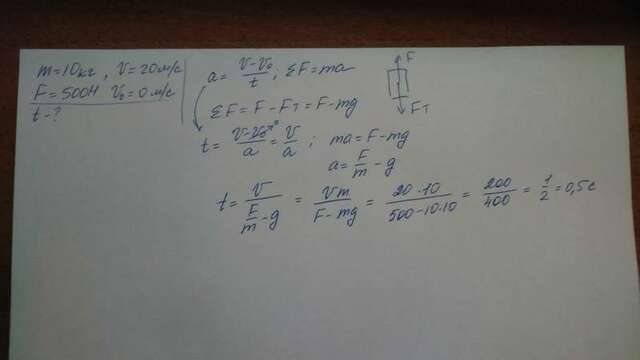 m=10кг, V=20м/с
F=500Н V₀=0м/с
t-?
a= (V-V₀)/t; ΣF=ma
ΣF=F-Fт=F-mg
t= (V-V₀→⁰)/a = V/a; ma=F-mg
a= F/m -g
t= V/(F/m -g) = Vm/(F-mg) = (20·10)/(500-10·10) = 200/400 = 1/2 =0,5с
F
Fт